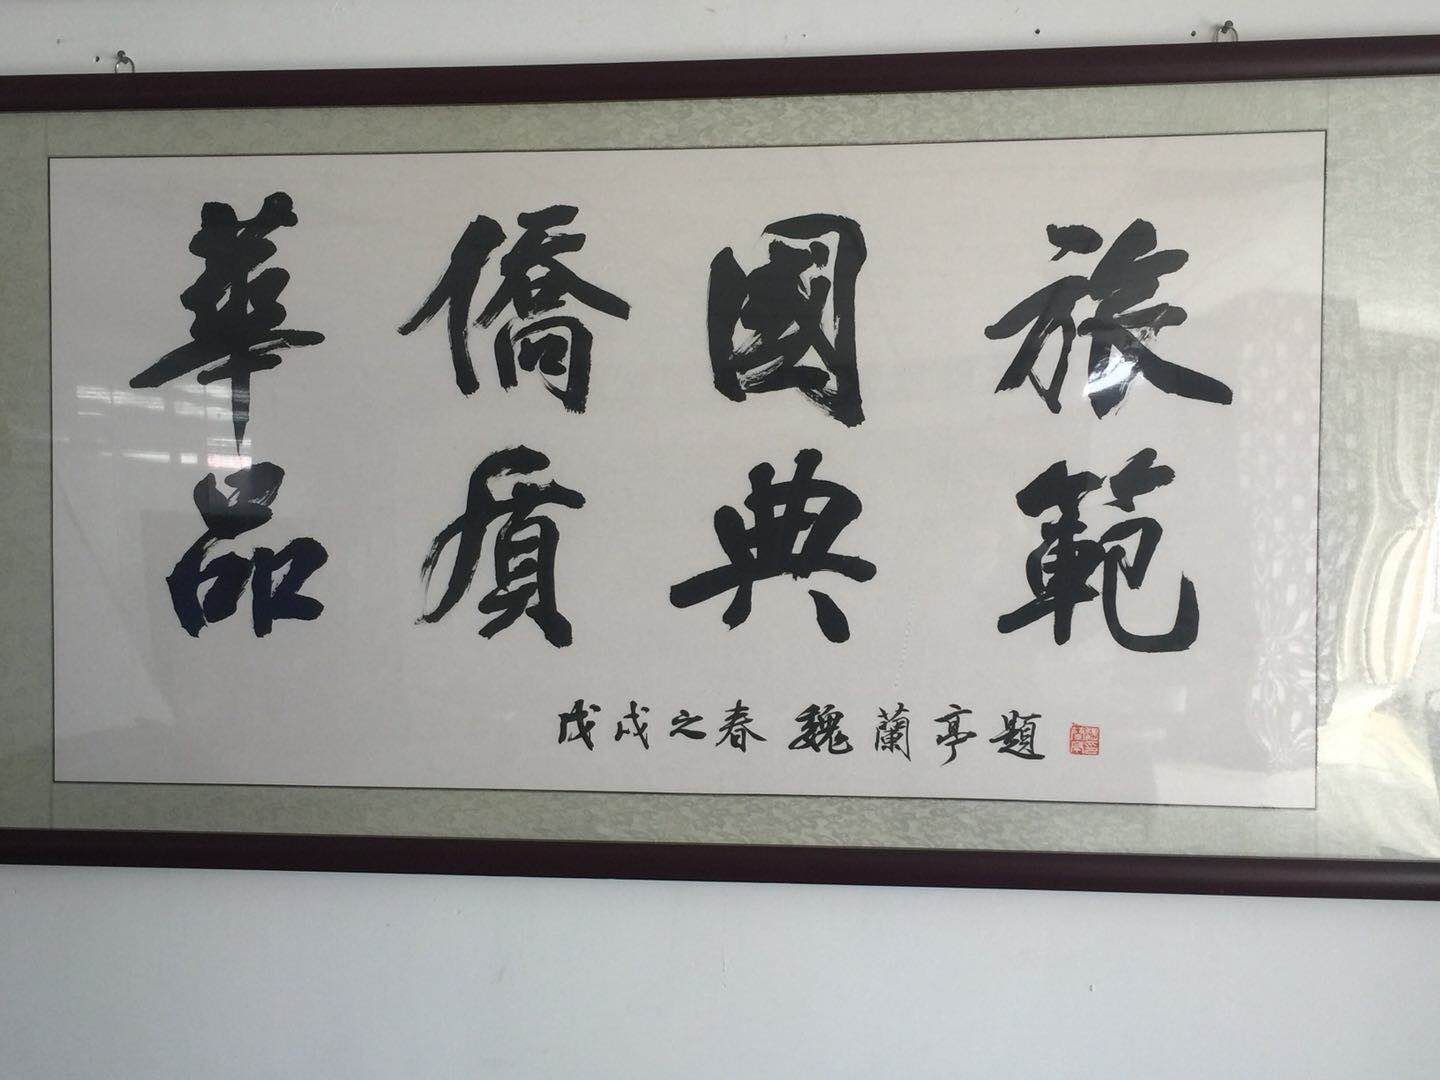 華僑國旅
品質典範
戊戌之春 魏蘭亭題